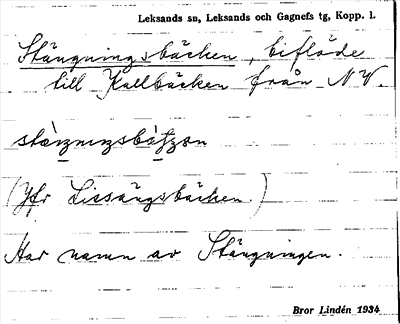 Leksands sn, Leksands och Gagnefs tg, Kopp. l.
Stängningsbäcken, biflöde
till Kallbäcken från NV.
(Jfr Lissängsbäcken.)
Har namn av Stängningen.
Bror Lindén 1934